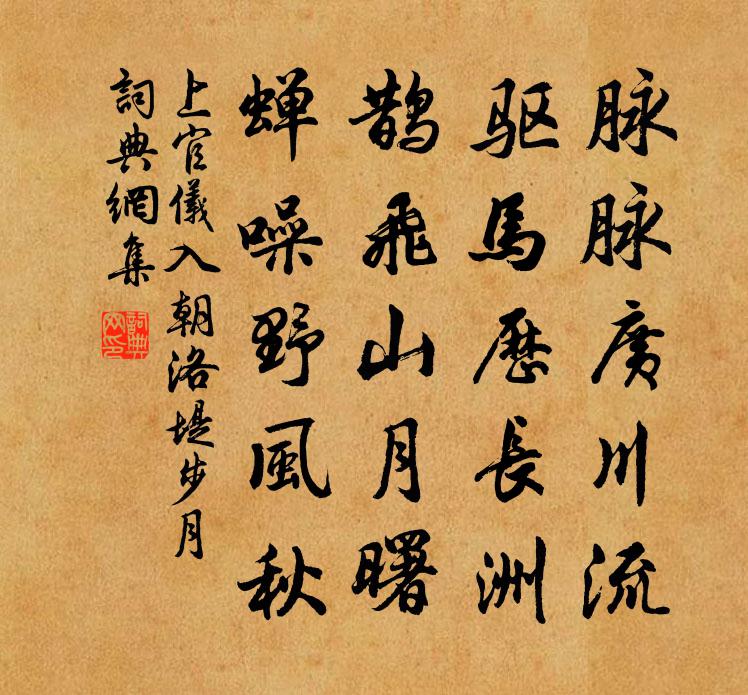 脉脉廣川流
驱馬歷長洲
鹊飛山月曙
蝉噪野風秋
上官儀入朝洛堤步月
詞典網集
詞典
网印